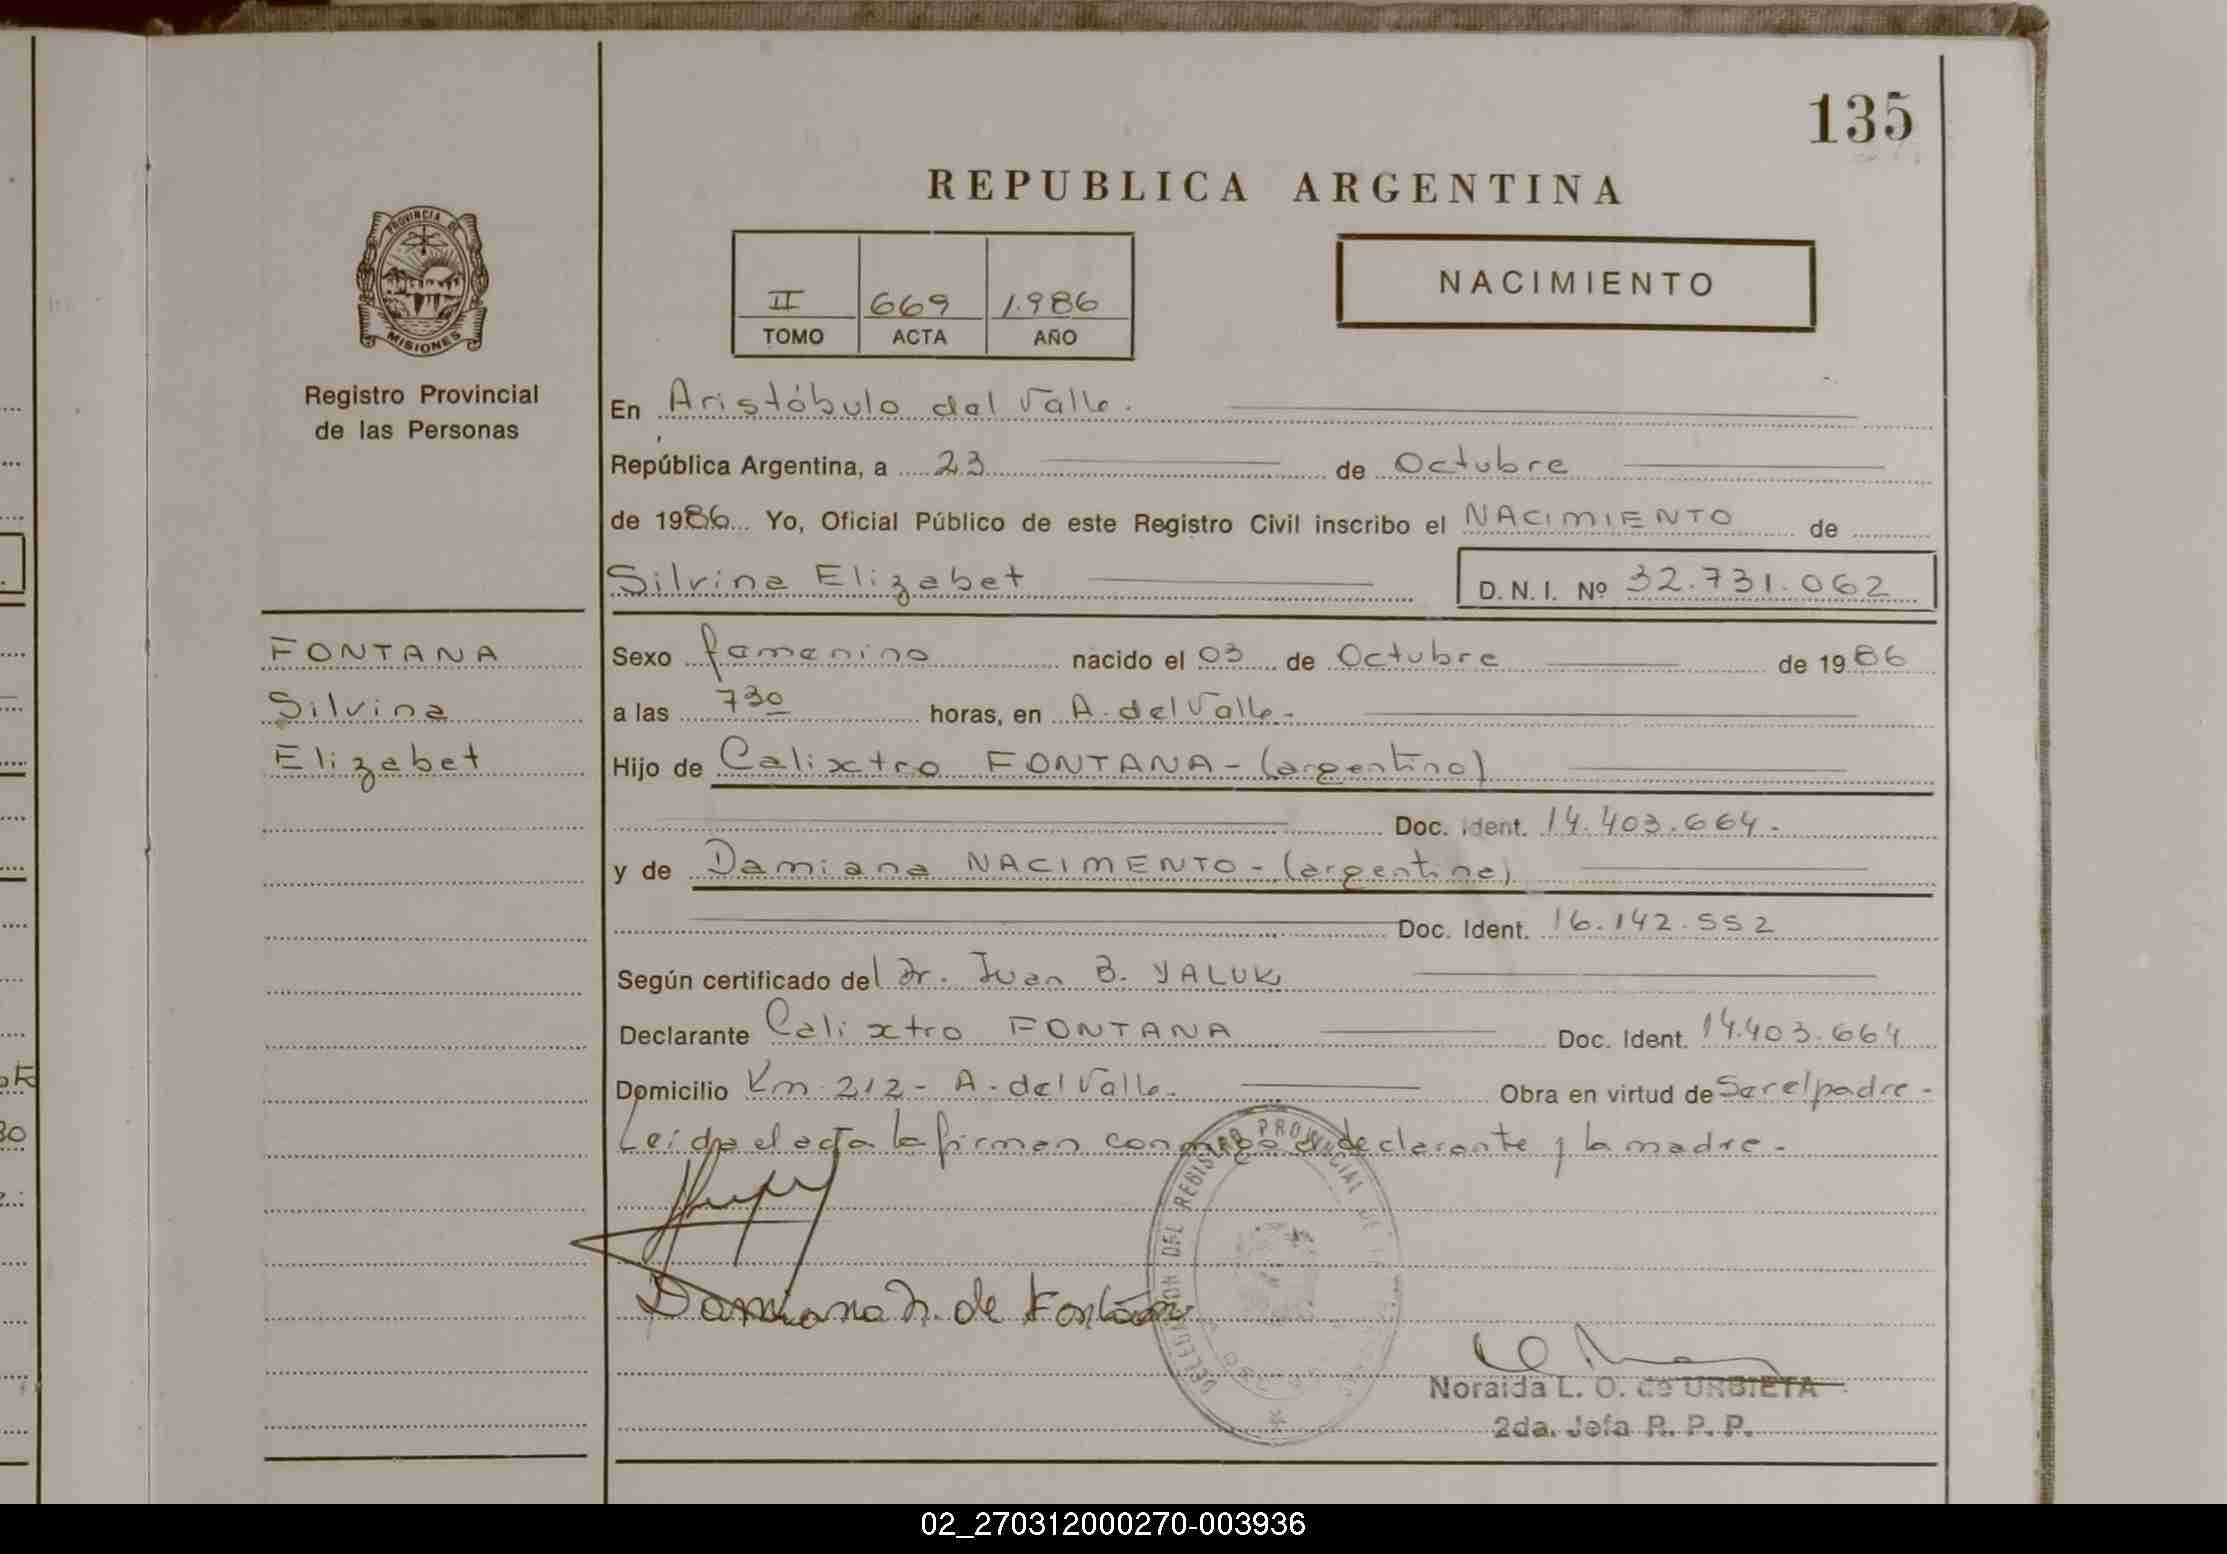 135
REPUBLICA ARGENTINA
PROVINCIA DE
MISIONES
Registro Provincial
de las Personas
II 669 1.986
TOMO ACTA AÑO
NACIMIENTO
En Aristóbulo del Valle.
República Argentina, a 23 de Octubre
de 1986 Yo, Oficial Público de este Registro Civil inscribo el NACIMIENTO de
Silvina Elizabet D. N. I. Nº 32.731.062
FONTANA
Silvina
Elizabet
Sexo femenino nacido el 03 de Octubre de 1986
a las 730 horas, en A. del Valle.
Hijo de Calixtro FONTANA - (argentino)
Doc. Ident. 14.403.664.
y de Damiana NACIMENTO - (argentina)
Doc. Ident. 16.142.552
Según certificado del Dr. Juan B. YALUK
Declarante Calixtro FONTANA Doc. Ident. 14.403.664
Domicilio Km 212 - A. del Valle. Obra en virtud de Ser el padre -
Leída el acta la firman conmigo el declarante y la madre -
DELEGACION DEL REGISTRO PROVINCIAL DE
Damiana N. de Fontana
Noraida L. O. de URBIETA
2da. Jefa R. P. P.
02_270312000270-003936